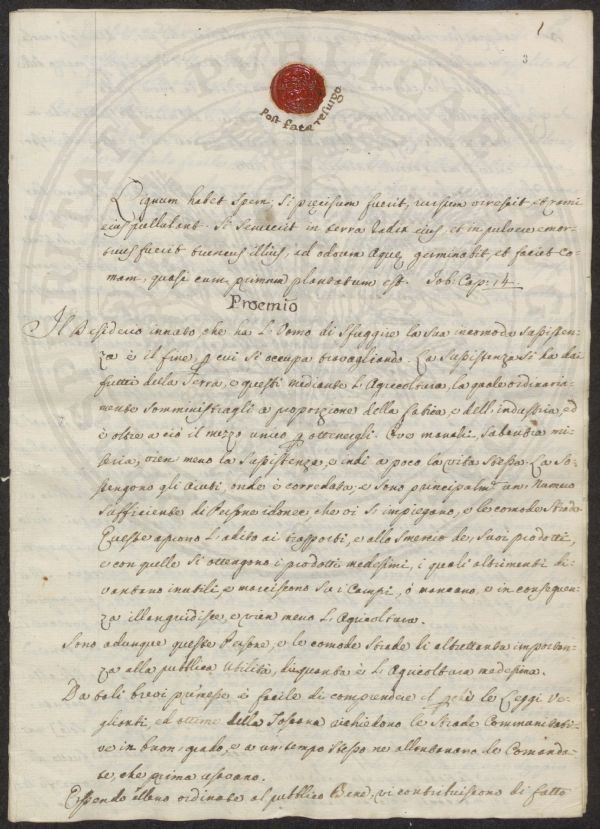 1
3
Post fata resurgo
Lignum habet spem; si præcisum fuerit, rursum virescit, et rami
eius pullulant. Si senuerit in terra radix eius, et in pulvere emor-
tuus fuerit truncus illius, ad odorem aquæ germinabit, et faciet Co-
mam, quasi cum primum plantatum est. Iob. Cap: 14.
Proemio
Il Desiderio innato, che ha L'Uomo di sfuggire la sua incomoda Sussisten-
za è il fine, p cui si occupa travagliando. La Sussistenza si ha dai
frutti della Terra, e questi mediante L'Agricoltura, la quale ordinaria-
mente somministragli a proporzione della fatica, e dell'industria, ed
è oltre a ciò il mezzo unico p ottenergli. Ove manchi, subentra mi-
seria, vien meno la Sussistenza, e indi a poco la vita stessa. La So-
stengono gli aiuti, onde è corredata, e sono principalmte un Numero
sufficiente di Persone idonee, che vi si impiegano, e le comode Strade
Queste aprono L'adito ai trasporti, e allo smercio de, suoi prodotti,
e con quelle si ottengono i prodotti medesimi, i quali altrimenti di-
ventano inutili, e marciscono su i Campi, ò mancano, e in conseguen-
za illanguidisce, e vien meno L'Agricoltura.
Sono adunque queste Persone, e le comode Strade di altrettanta importan-
za alla pubblica Utilità, di quanta è L'Agricoltura medesima.
Da tali brevi premesse è facile di comprendere il le Leggi Ve-
glianti, ed ottime della Toscana richiedono le Strade Communitati-
ve in buon grado, e a un tempo stesso ne allontanaro le Comanda-
te, che prima usavano.
Essendo elleno ordinate al pubblico Bene, vi contribuiscono di fatto